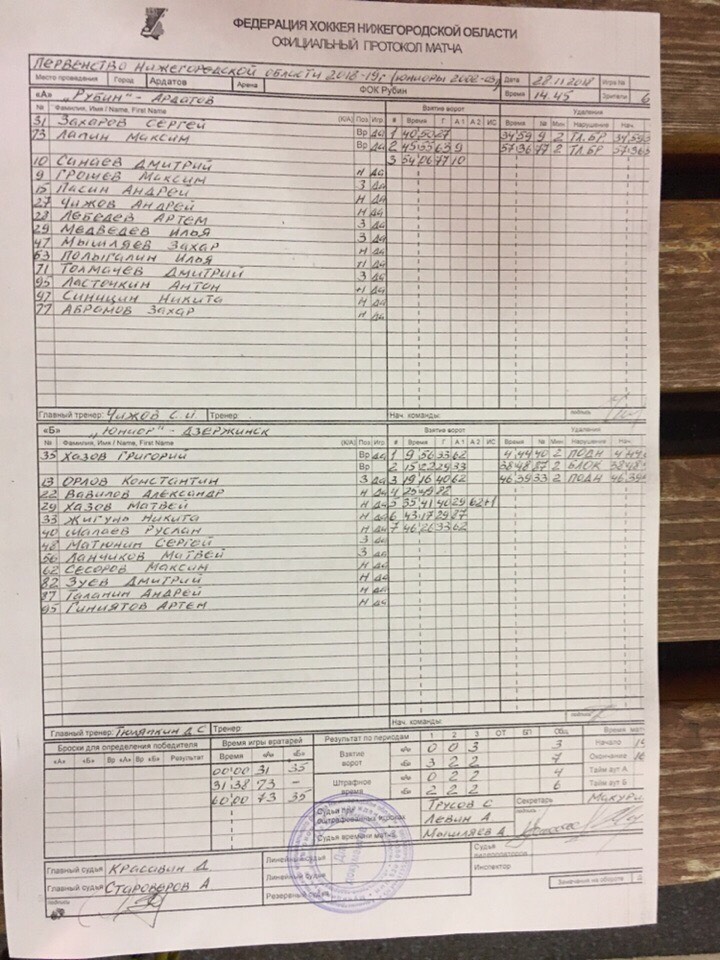 ФЕДЕРАЦИЯ ХОККЕЯ НИЖЕГОРОДСКОЙ ОБЛАСТИ
ОФИЦИАЛЬНЫЙ ПРОТОКОЛ МАТЧА
Первенство Нижегородской области 2018-19г (юниоры 2002-03) Дата 28.11.2018 Игра №
Место проведения Город Ардатов Арена ФОК Рубин Время 14.45 Зрители 6
«А» „Рубин" - Ардатов Взятие ворот Удаления
№ Фамилия, Имя / Name, First Name (К/А) Поз Игр # Время Г А1 А2 ИС Время № Мин Нарушение Нач.
31 Захаров Сергей Вр да 1 40 50 67 34 59 9 2 ТЛ.БР 34 59
73 Лапин Максим Вр да 2 45 55 63 9 57 36 77 2 ТЛ.БР 57 36
3 54 06 77 10
10 Синаев Дмитрий Н да
9 Грошев Максим З да
15 Пасин Андрей Н да
27 Чижов Андрей Н да
28 Лебедев Артем З да
29 Медведев Илья З да
47 Мышляев Захар Н да
63 Полыгалин Илья Н да
71 Толмачев Дмитрий З да
95 Ласточкин Антон Н да
97 Синицин Никита Н да
77 Абрамов Захар Н да
Главный тренер: Чижов С.И Тренер Нач. команды: подпись
«Б» „Юниор" - Дзержинск Взятие ворот Удаления
№ Фамилия, Имя / Name, First Name (К/А) Поз Игр # Время Г А1 А2 ИС Время № Мин Нарушение Нач.
35 Хазов Григорий Вр да 1 9 56 33 62 4 44 40 2 ПОДН 4 44
Вр 2 15 22 29 33 38 48 87 2 БЛОК 38 48
13 Орлов Константин З да 3 19 16 40 62 46 39 33 2 ПОДН 46 39
22 Вавилов Александр Н да 4 25 49 82
29 Хазов Матвей Н да 5 35 41 40 29 62 +1
33 Жигунь Никита Н да 6 43 17 29 87
40 Малаев Руслан Н да 7 46 26 33 62
48 Матюнин Сергей З да
56 Ланчиков Матвей З да
62 Сесоров Максим Н да
82 Зуев Дмитрий Н да
87 Таланин Андрей Н да
95 Гиниятов Артем Н да
Главный тренер: Тюляпкин Д.С Тренер Нач. команды: подпись
Броски для определения победителя Время игры вратарей Результат по периодам 1 2 3 ОТ БП Общ Время мат
«А» «Б» Вр «А» Вр «Б» Результат Время «А» «Б» Взятие ворот «А» 0 0 3 3 Начало
00 00 31 35 «Б» 3 2 2 7 Окончание
31 38 73 - Штрафное время «А» 0 2 2 4 Тайм аут А
60 00 73 35 «Б» 2 2 2 6 Тайм аут Б
Судья при оштрафованных игроках Трусов С Секретарь
Левин А подпись
Судья времени матча Мышляев А
Главный судья Красавин Д Линейный судья Судья видеоповторов
Главный судья Староверов А Линейный судья Инспектор
подпись Резервный судья Замечания на обороте